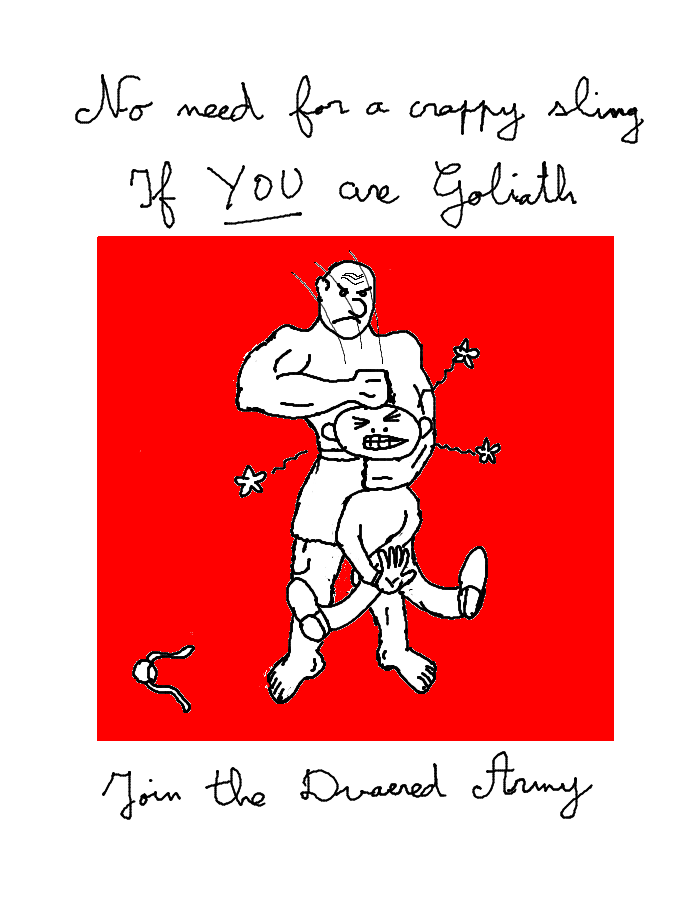 No need for a crappy sling
If YOU are Goliath
Join the Dvaered Army